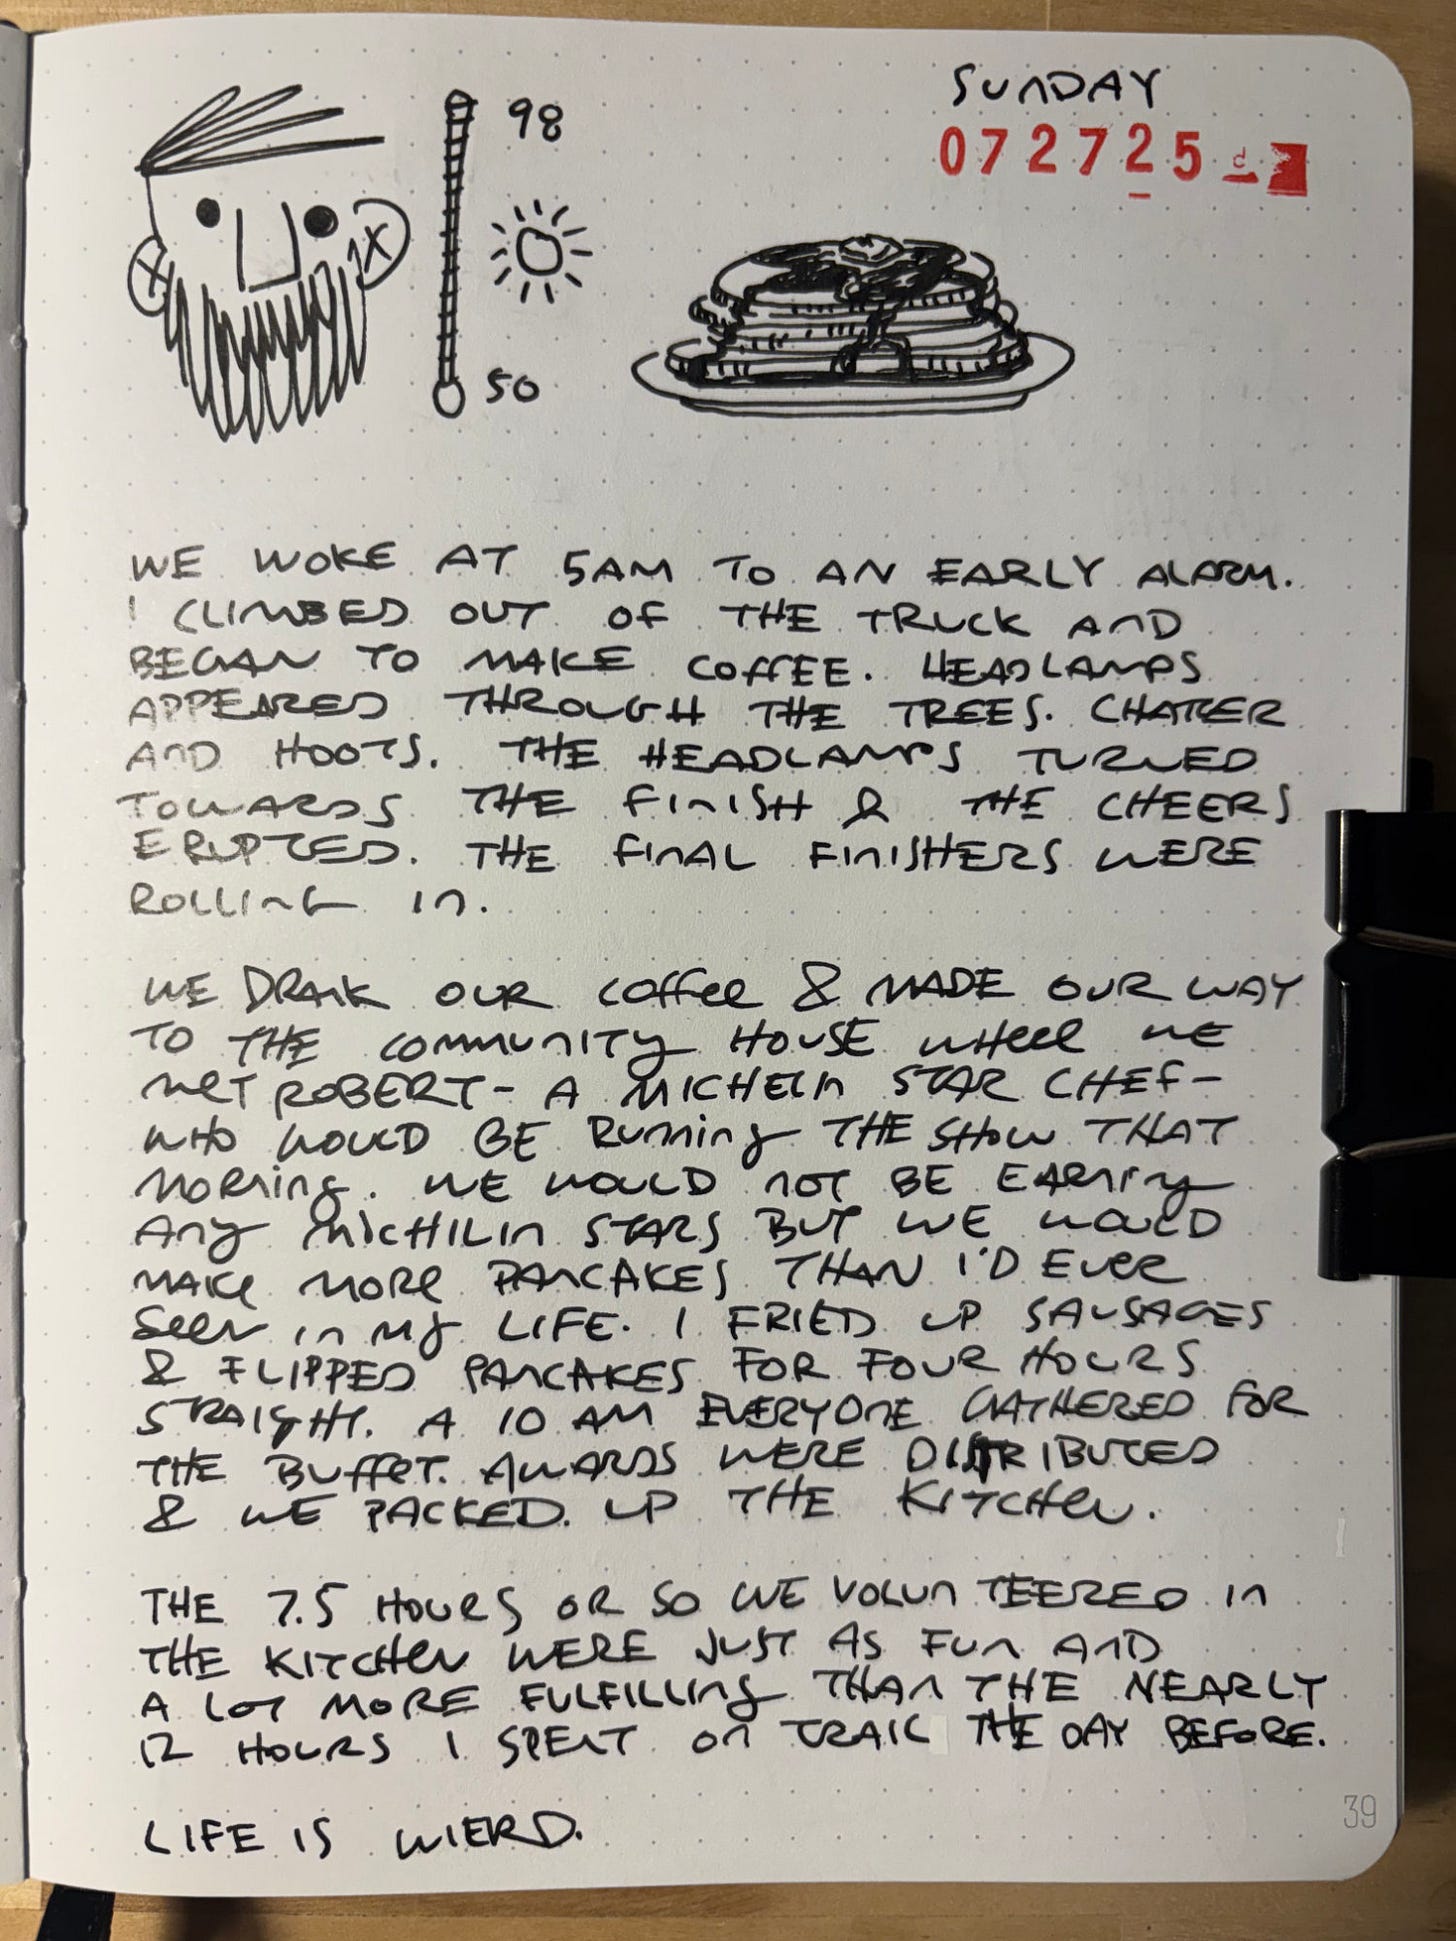 SUNDAY
072725
98
50
WE WOKE AT 5AM TO AN EARLY ALARM.
I CLIMBED OUT OF THE TRUCK AND
BEGAN TO MAKE COFFEE. HEADLAMPS
APPEARED THROUGH THE TREES. CHATER
AND HOOTS. THE HEADLAMPS TURNED
TOWARDS THE FINISH & THE CHEERS
ERUPTED. THE FINAL FINISHERS WERE
ROLLING IN.
WE DRANK OUR COFFEE & MADE OUR WAY
TO THE COMMUNITY HOUSE WHERE WE
MET ROBERT - A MICHELIN STAR CHEF -
WHO WOULD BE RUNNING THE SHOW THAT
MORNING. WE WOULD NOT BE EARNING
ANY MICHILIN STARS BUT WE WOULD
MAKE MORE PANCAKES THAN I'D EVER
SEEN IN MY LIFE. I FRIED UP SAUSAGES
& FLIPPED PANCAKES FOR FOUR HOURS
STRAIGHT. A 10 AM EVERYONE GATHERED FOR
THE BUFFET. AWARDS WERE DISTRIBUTED
& WE PACKED UP THE KITCHEN.
THE 7.5 HOURS OR SO WE VOLUNTEERED IN
THE KITCHEN WERE JUST AS FUN AND
A LOT MORE FULFILLING THAN THE NEARLY
12 HOURS I SPENT ON TRAIL THE DAY BEFORE.
LIFE IS WIERD.
39